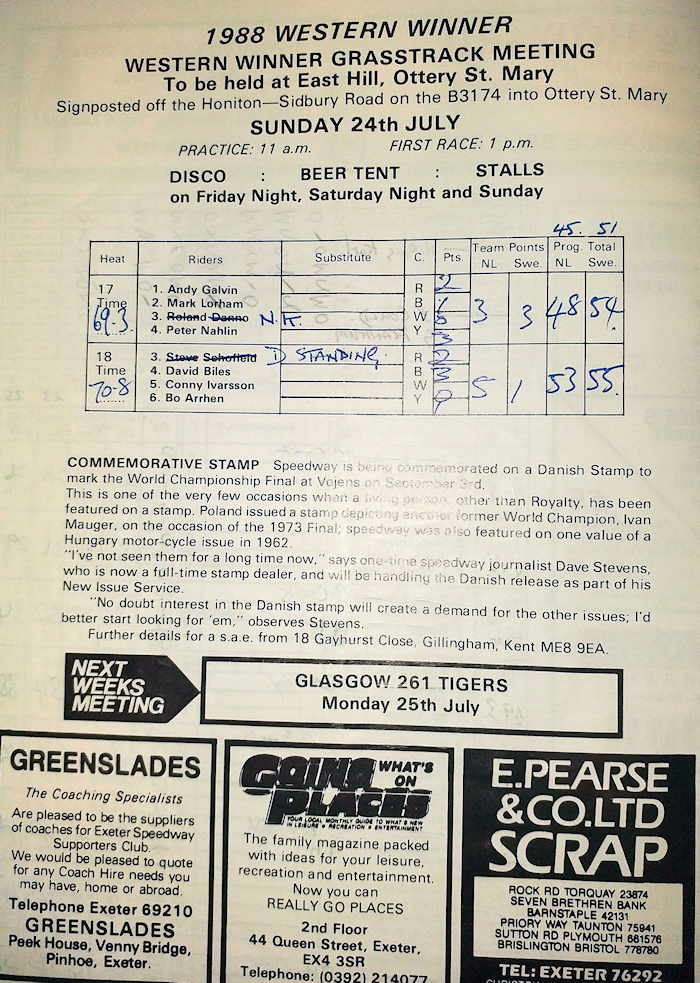 1988 WESTERN WINNER
WESTERN WINNER GRASSTRACK MEETING
To be held at East Hill, Ottery St. Mary
Signposted off the Honiton—Sidbury Road on the B3174 into Ottery St. Mary
SUNDAY 24th JULY
PRACTICE: 11 a.m. FIRST RACE: 1 p.m.
DISCO : BEER TENT : STALLS
on Friday Night, Saturday Night and Sunday
45. 51
Heat Riders Substitute C. Pts. Team Points Prog. Total
NL Swe. NL Swe.
17 1. Andy Galvin R 2
Time 2. Mark Lorham B 1 3 3 48 54
69.3 3. Roland Danno N.K. W
4. Peter Nahlin Y 3
18 3. Steve Schofield D STANDING. R 2
Time 4. David Biles B 3 5 1 53 55
70-8 5. Conny Ivarsson W
6. Bo Arrhen Y
COMMEMORATIVE STAMP Speedway is being commemorated on a Danish Stamp to
mark the World Championship Final at Vojens on September 3rd.
This is one of the very few occasions when a living person, other than Royalty, has been
featured on a stamp. Poland issued a stamp depicting another former World Champion, Ivan
Mauger, on the occasion of the 1973 Final; speedway was also featured on one value of a
Hungary motor-cycle issue in 1962.
"I've not seen them for a long time now," says one-time speedway journalist Dave Stevens,
who is now a full-time stamp dealer, and will be handling the Danish release as part of his
New Issue Service.
"No doubt interest in the Danish stamp will create a demand for the other issues; I'd
better start looking for 'em," observes Stevens.
Further details for a s.a.e. from 18 Gayhurst Close, Gillingham, Kent ME8 9EA.
NEXT
WEEKS
MEETING
GLASGOW 261 TIGERS
Monday 25th July
GREENSLADES
The Coaching Specialists
Are pleased to be the suppliers
of coaches for Exeter Speedway
Supporters Club.
We would be pleased to quote
for any Coach Hire needs you
may have, home or abroad.
Telephone Exeter 69210
GREENSLADES
Peek House, Venny Bridge,
Pinhoe, Exeter.
GOING PLACES
WHAT'S
ON
YOUR LOCAL MONTHLY GUIDE TO WHAT'S NEW
IN LEISURE • RECREATION • ENTERTAINMENT
The family magazine packed
with ideas for your leisure,
recreation and entertainment.
Now you can
REALLY GO PLACES
2nd Floor
44 Queen Street, Exeter,
EX4 3SR
Telephone: (0392) 214077
E.PEARSE
&CO.LTD
SCRAP
ROCK RD TORQUAY 23874
SEVEN BRETHREN BANK
BARNSTAPLE 42131
PRIORY WAY TAUNTON 75941
SUTTON RD PLYMOUTH 661576
BRISLINGTON BRISTOL 778780
TEL: EXETER 76292